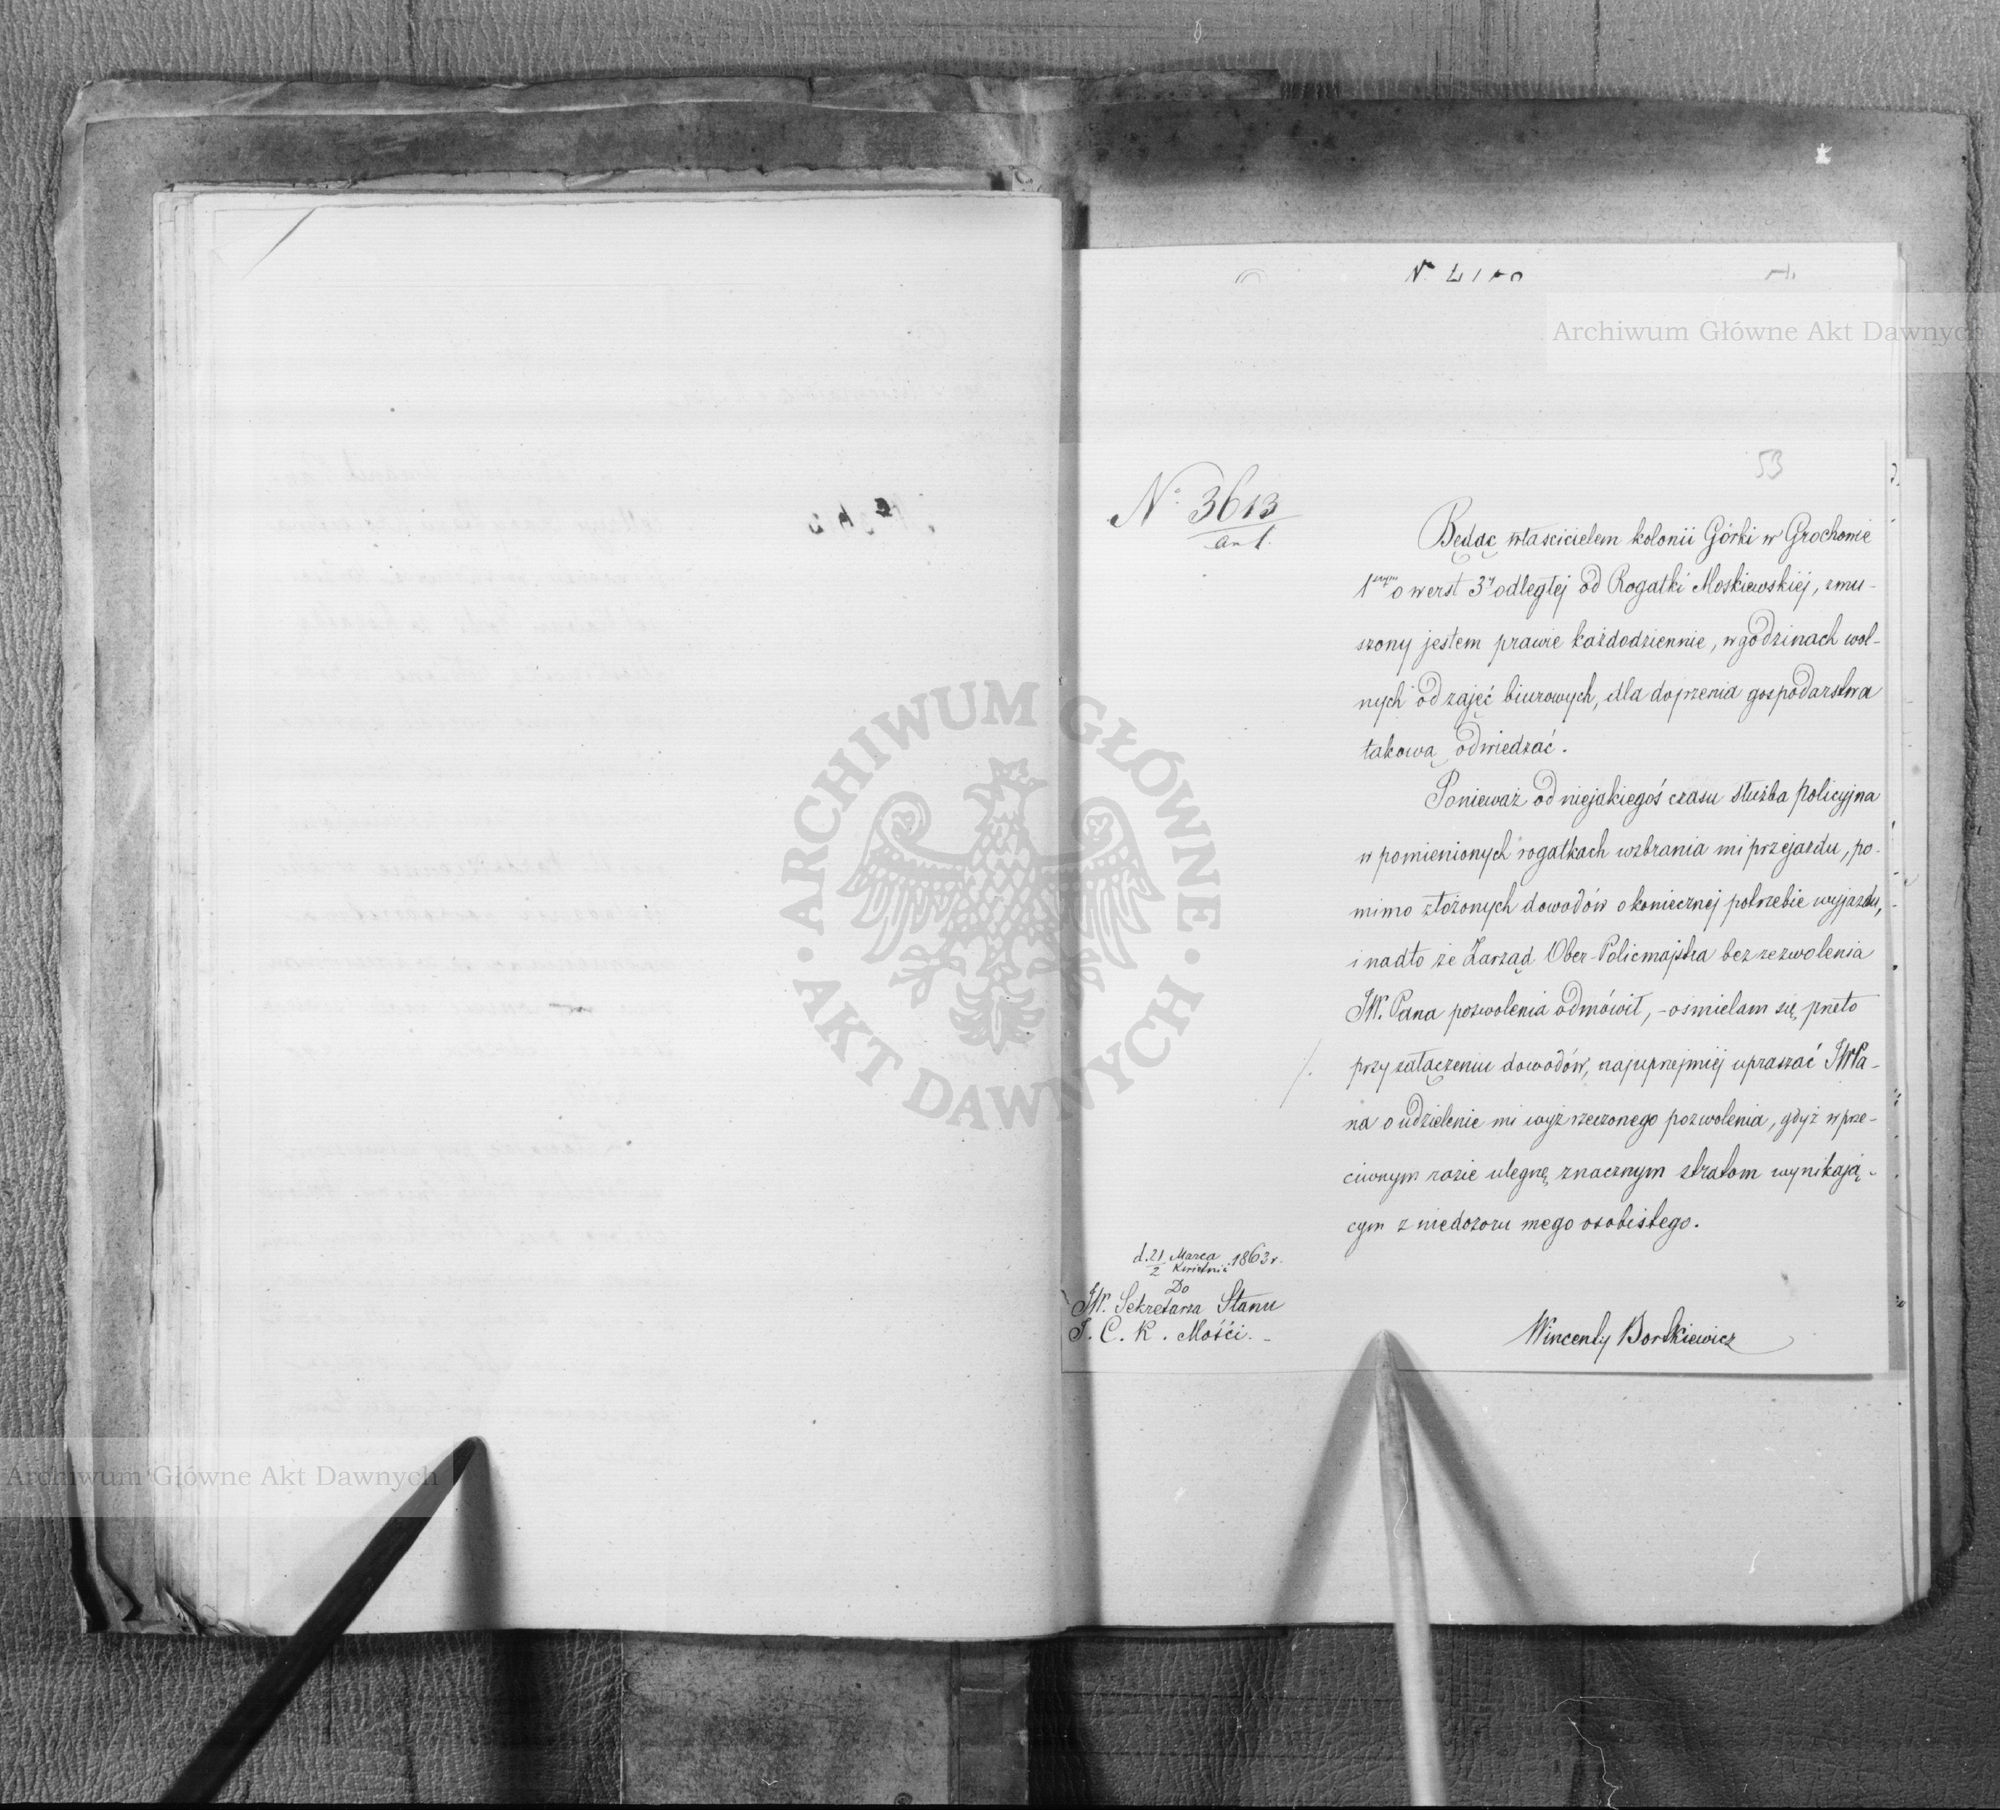 Archiwum Główne Akt Dawnych
53
No 3613
an 1.
Będąc właścicielem kolonii Górki w Grochowie
1szym o werst 3y odległej od Rogatki Moskiewskiej, zmu-
szony jestem prawie każdodziennie, w godzinach wol-
nych od zajęć biurowych, dla dojrzenia gospodarstwa
takową odwiedzać.
Ponieważ od niejakiegoś czasu służba policyjna
w pomienionych rogatkach wzbrania mi przejazdu, po-
mimo złożonych dowodów o koniecznej potrzebie wyjazdu,
i nadto że Zarząd Ober-Policmajstra bez zezwolenia
JW. Pana pozwolenia odmówił, - ośmielam się przeto
przy załączeniu dowodów, najuprzejmiej upraszać JWPa-
na o udzielenie mi wyż rzeczonego pozwolenia, gdyż w prze-
ciwnym razie ulegnę znacznym stratom wynikają-
cym z niedozoru mego osobistego.
d. 21/2 Marca/Kwietnia 1863 r.
Do
JW. Sekretarza Stanu
J. C. K. Mości.
Wincenty Bortkiewicz
ARCHIWUM GŁÓWNE
AKT DAWNYCH
Archiwum Główne Akt Dawnych